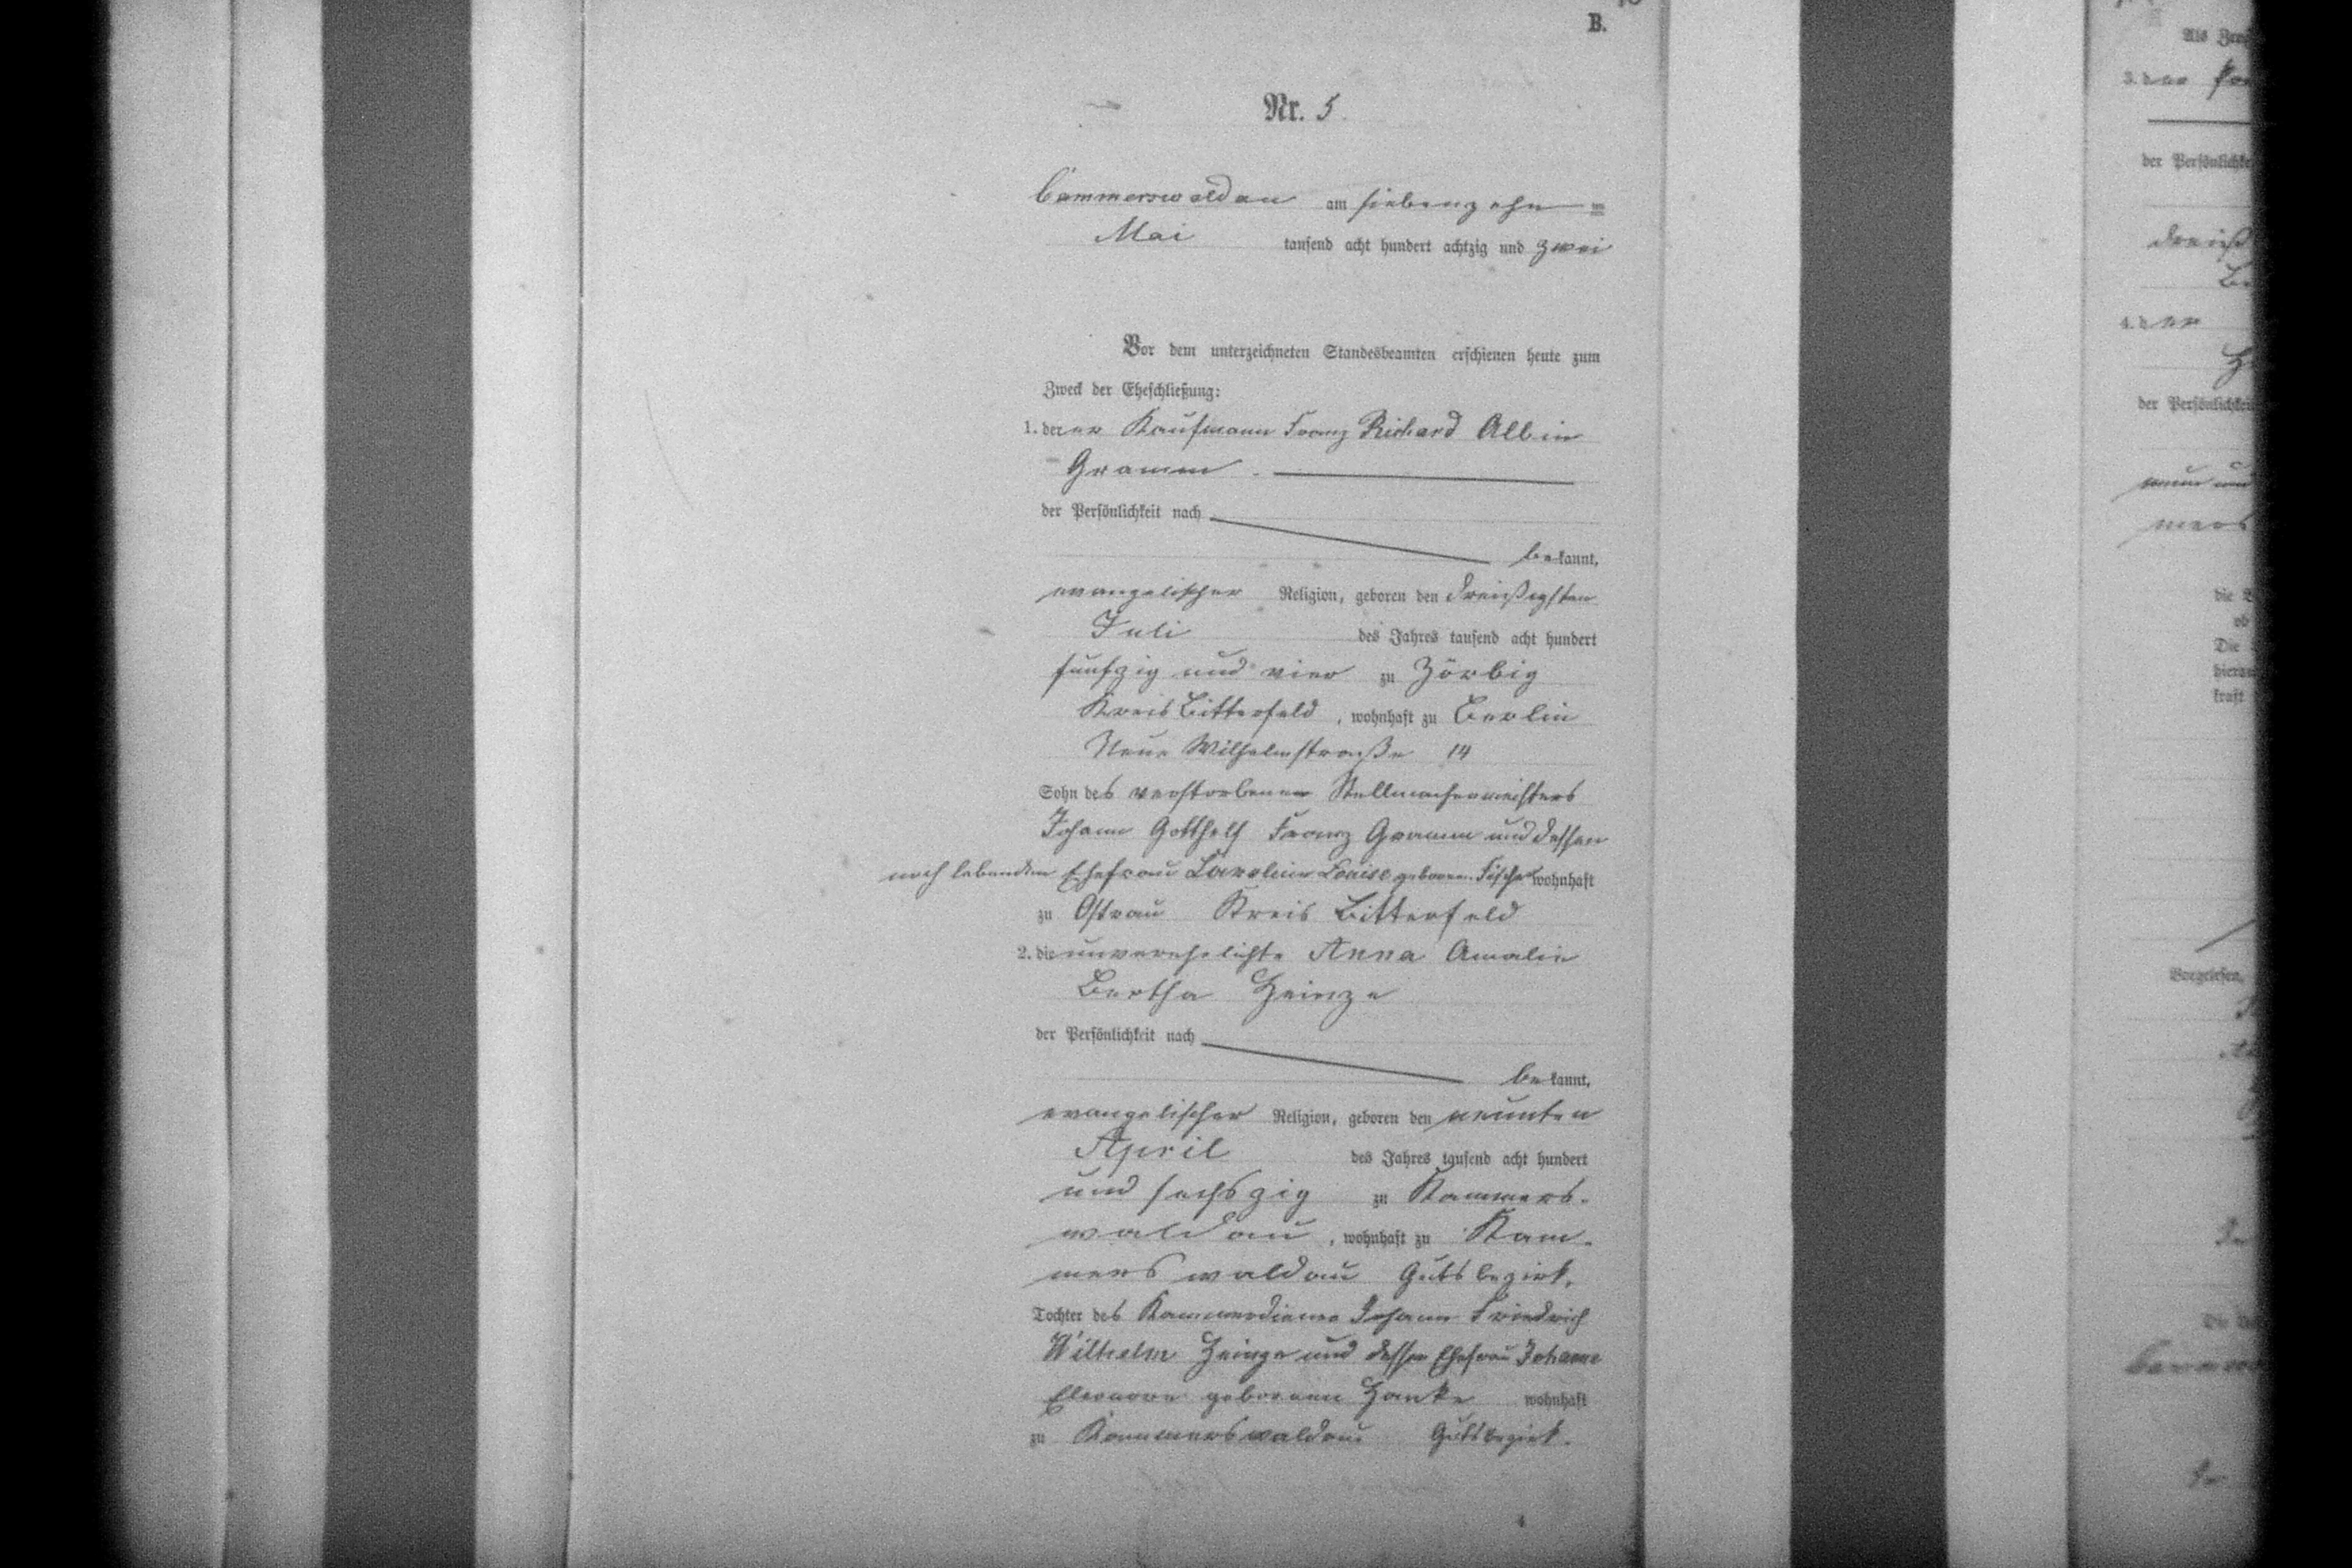 B.
Nr. 5.
Cammerswaldau am siebenzehn ten
Mai tausend acht hundert achtzig und zwei
Vor dem unterzeichneten Standesbeamten erschienen heute zum
Zweck der Eheschließung:
1. der er Kaufmann Franz Richard Albin
Gramm
der Persönlichkeit nach
be kannt,
evangelischer Religion, geboren den dreißigsten
Juli des Jahres tausend acht hundert
fünfzig und vier zu Zörbig
Kreis Bitterfeld, wohnhaft zu Berlin
Neue Wilhelmstraße 14
Sohn des verstorbenen Stellmachermeisters
Johann Gotthelf Franz Gramm und dessen
noch lebenden Ehefrau Karoline Louise geboren Fischer wohnhaft
zu Ostrau Kreis Bitterfeld
2. die unverehelichte Anna Amalie
Bertha Heinze
der Persönlichkeit nach
be kannt,
evangelischer Religion, geboren den neunten
April des Jahres tausend acht hundert
und sechszig zu Kammers-
waldau, wohnhaft zu Kam-
merswaldau Gutsbezirk,
Tochter des Kammerdieners Johann Friedrich
Wilhelm Heinze und dessen Ehefrau Johanne
Eleonore geborenen Hanke wohnhaft
zu Kammerswaldau Gutsbezirk.
4
Als
3. der
der
4. der
der
mers
die
Die
kraft